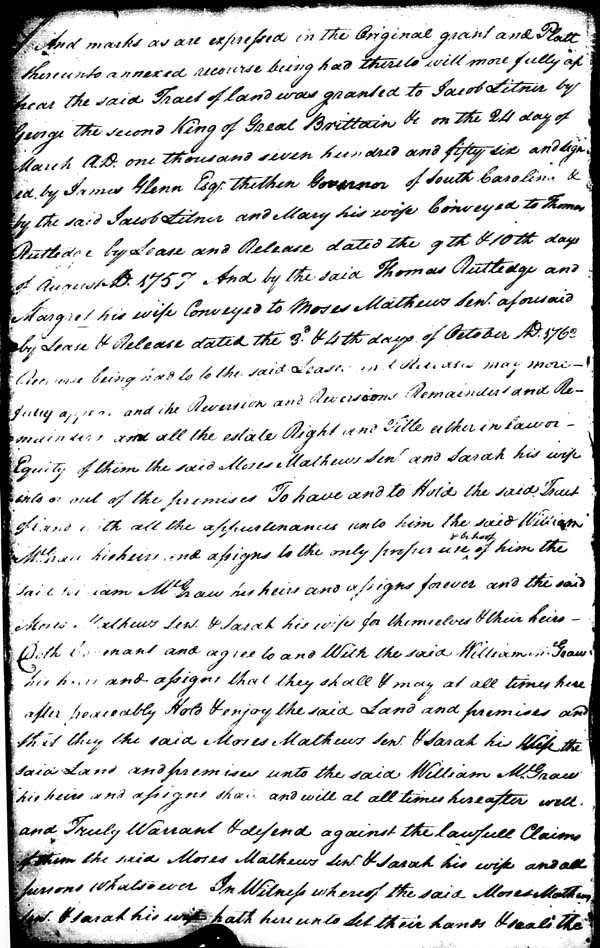 And marks as are expressed in the Original grant and Platt
thereunto annexed recourse being had thereto will more fully ap
pear the said Tract of land was granted to Jacob Litner by
George the second King of Great Brittain &c on the 24 day of
March A.D. one thousand seven hundred and fifty six and sign
ed by James Glenn Esqr. thethen Governor of South Carolina &
by the said Jacob Litner and Mary his wife Conveyed to Thomas
Rutledge by Lease and Release dated the 9th & 10th days
of August AD. 1757 And by the said Thomas Rutledge and
Margret his wife Conveyed to Moses Mathews Senr. aforesaid
by Lease & Release dated the 3d. & 4th days of October AD. 176
Recourse being had to to the said Leases and Releases may more–
fully appear and the Reversion and Reversions Remainders and Re–
mainders and all the estate Right and Title either in Law or–
Equity of them the said Moses Mathews Senr and Sarah his wife
into or out of the premises To have and to Hold the said Tract
of Land with all the appurtenances unto him the said William
McGraw his heirs and assigns to the only proper use & behoof of him the
said William McGraw his heirs and assigns forever and the said
Moses Mathews Senr. & Sarah his wife for themselves & their heirs–
Doth Covenant and agree to and With the said William McGraw
his heirs and assigns that they shall & may at all times here
after peaceably Hold & enjoy the said Land and premises and
that they the said Moses Mathews Senr. & Sarah his Wife the
said Land and premises unto the said William McGraw
his heirs and assigns shall and will at all times hereafter well
and Truly Warrant & defend against the lawfull Claims
of them the said Moses Mathews Senr. & Sarah his wife and all
persons whatsoever In Witness whereof the said Moses Mathews
Senr. & Sarah his wife hath hereunto Set their hands & seals the